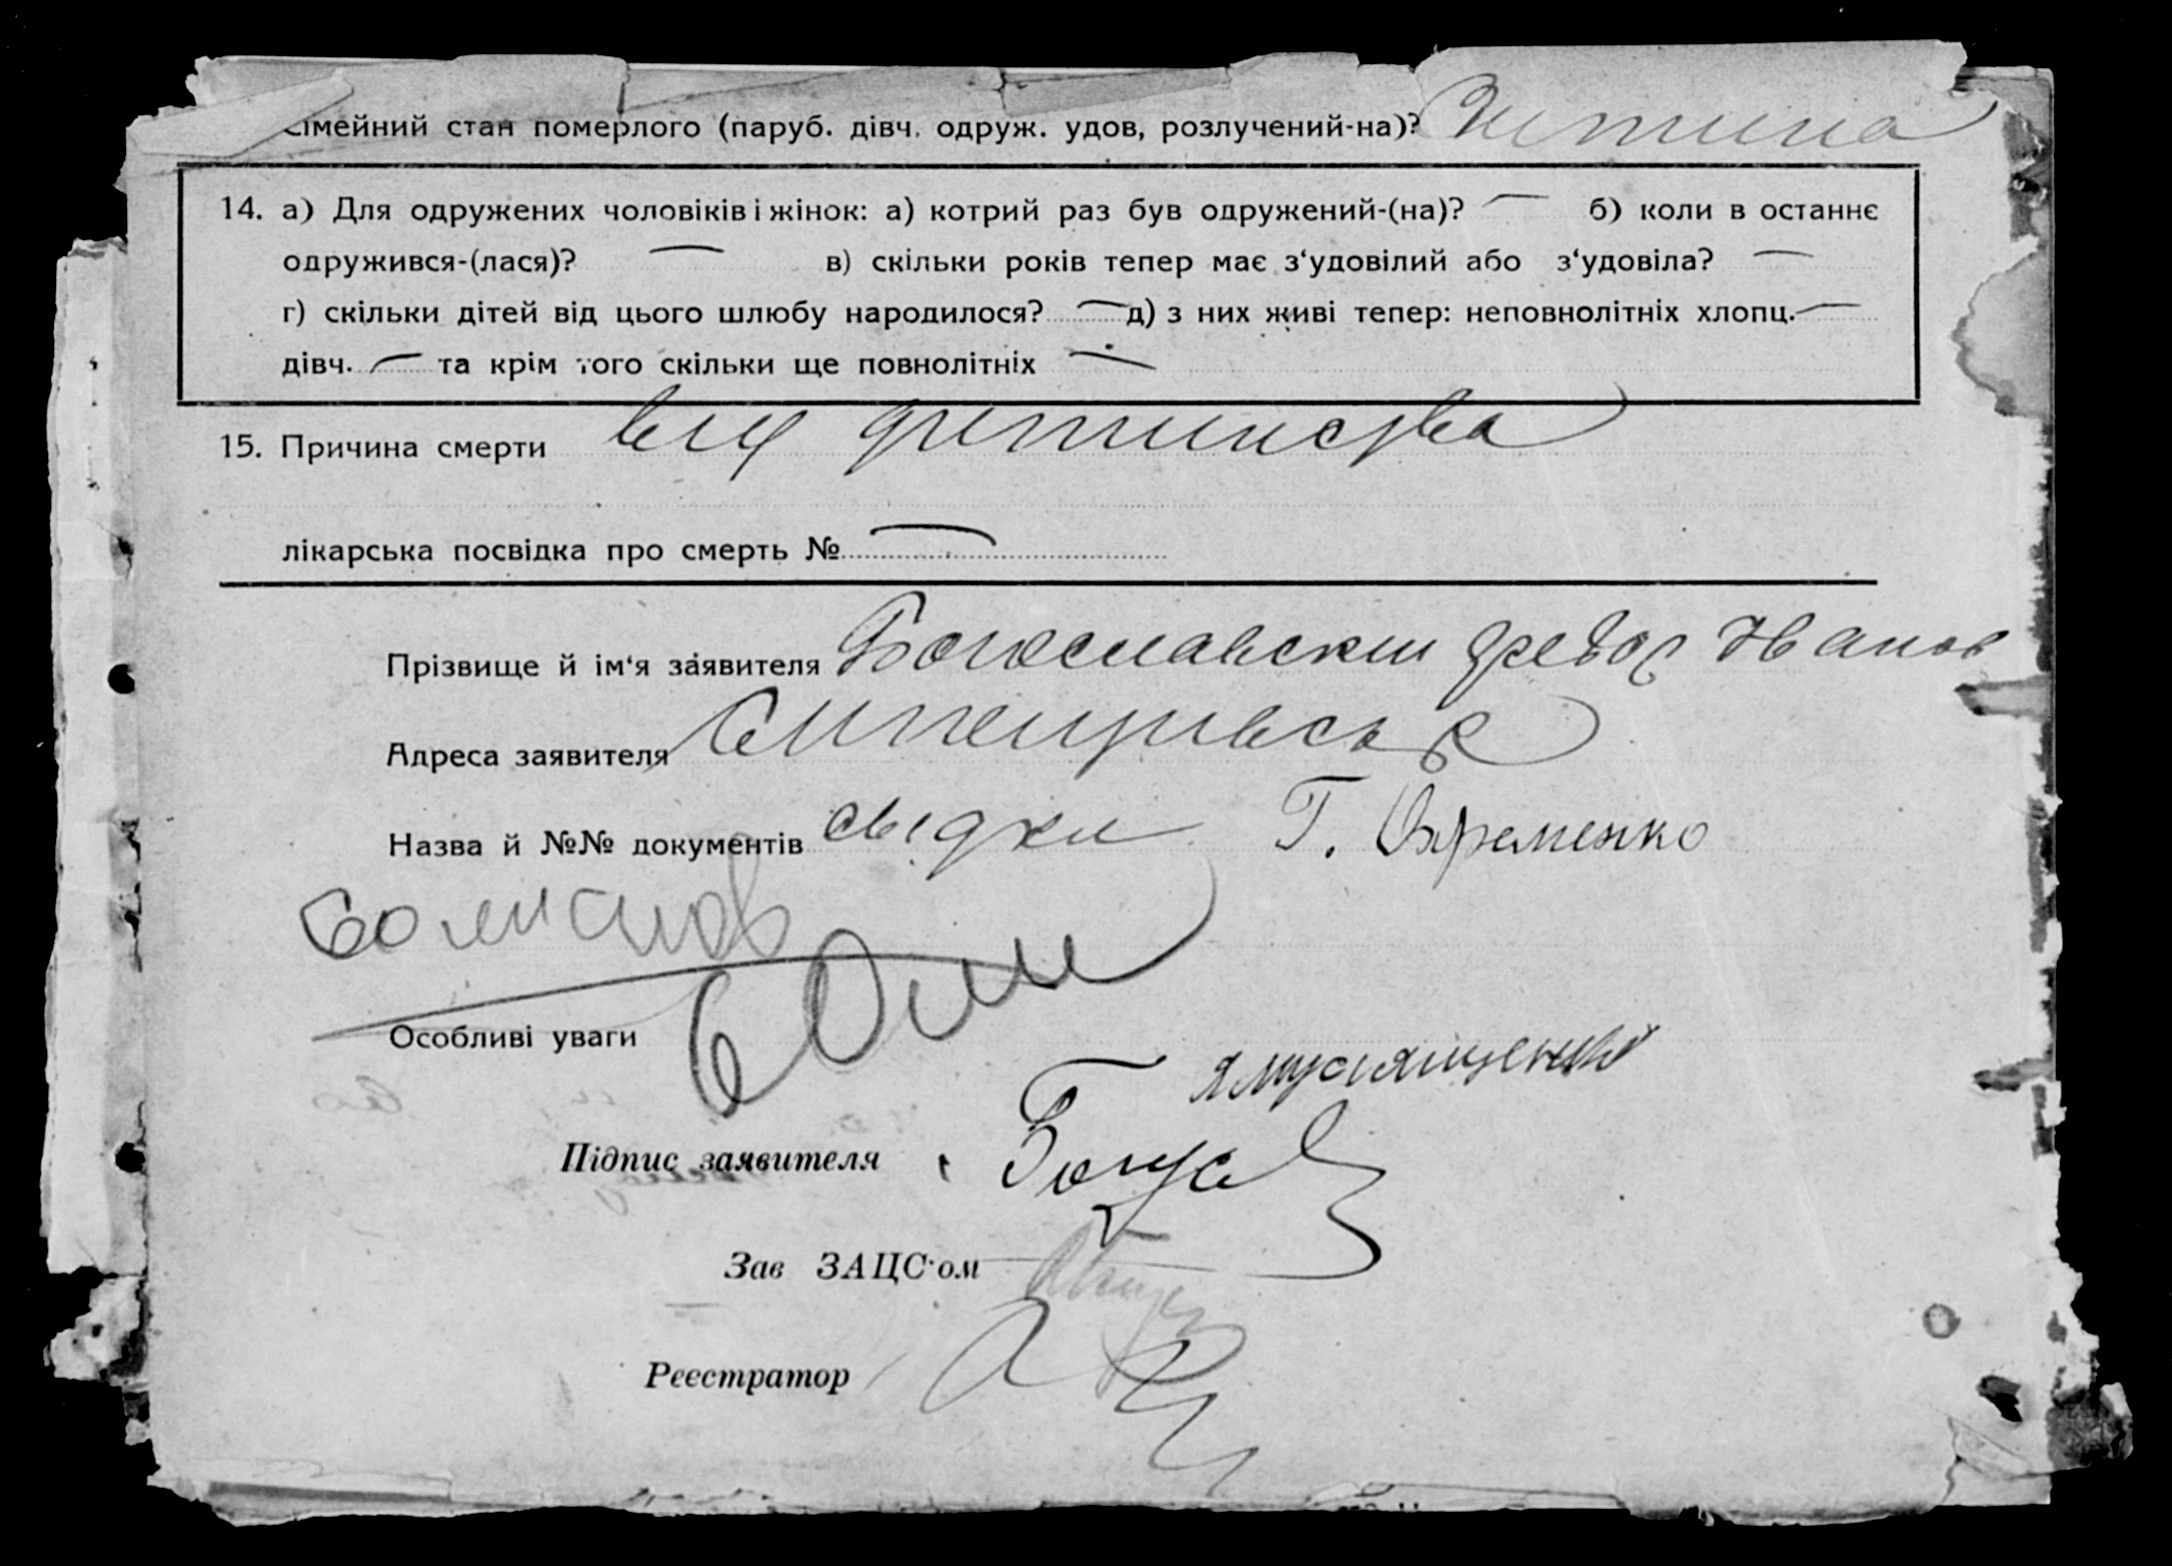 Сімейний стан померлого (паруб. дівч. одруж. удов, розлучений-на)? Дитина
14. а) Для одружених чоловіків і жінок: а) котрий раз був одружений-(на)? — б) коли в останнє
одружився-(лася)? — в) скільки років тепер має з‘удовілий або з‘удовіла? —
г) скільки дітей від цього шлюбу народилося? — д) з них живі тепер: неповнолітніх хлопц. —
дівч. — та крім того скільки ще повнолітніх —
15. Причина смерти від дитинства
лікарська посвідка про смерть № —
Прізвище й ім‘я заявителя Богославский Иванов
Адреса заявителя
Назва й №№ документів свідки Г. Єфременко
Особливі уваги
Підпис заявителя
Зав ЗАЦС‘ом
Реєстратор